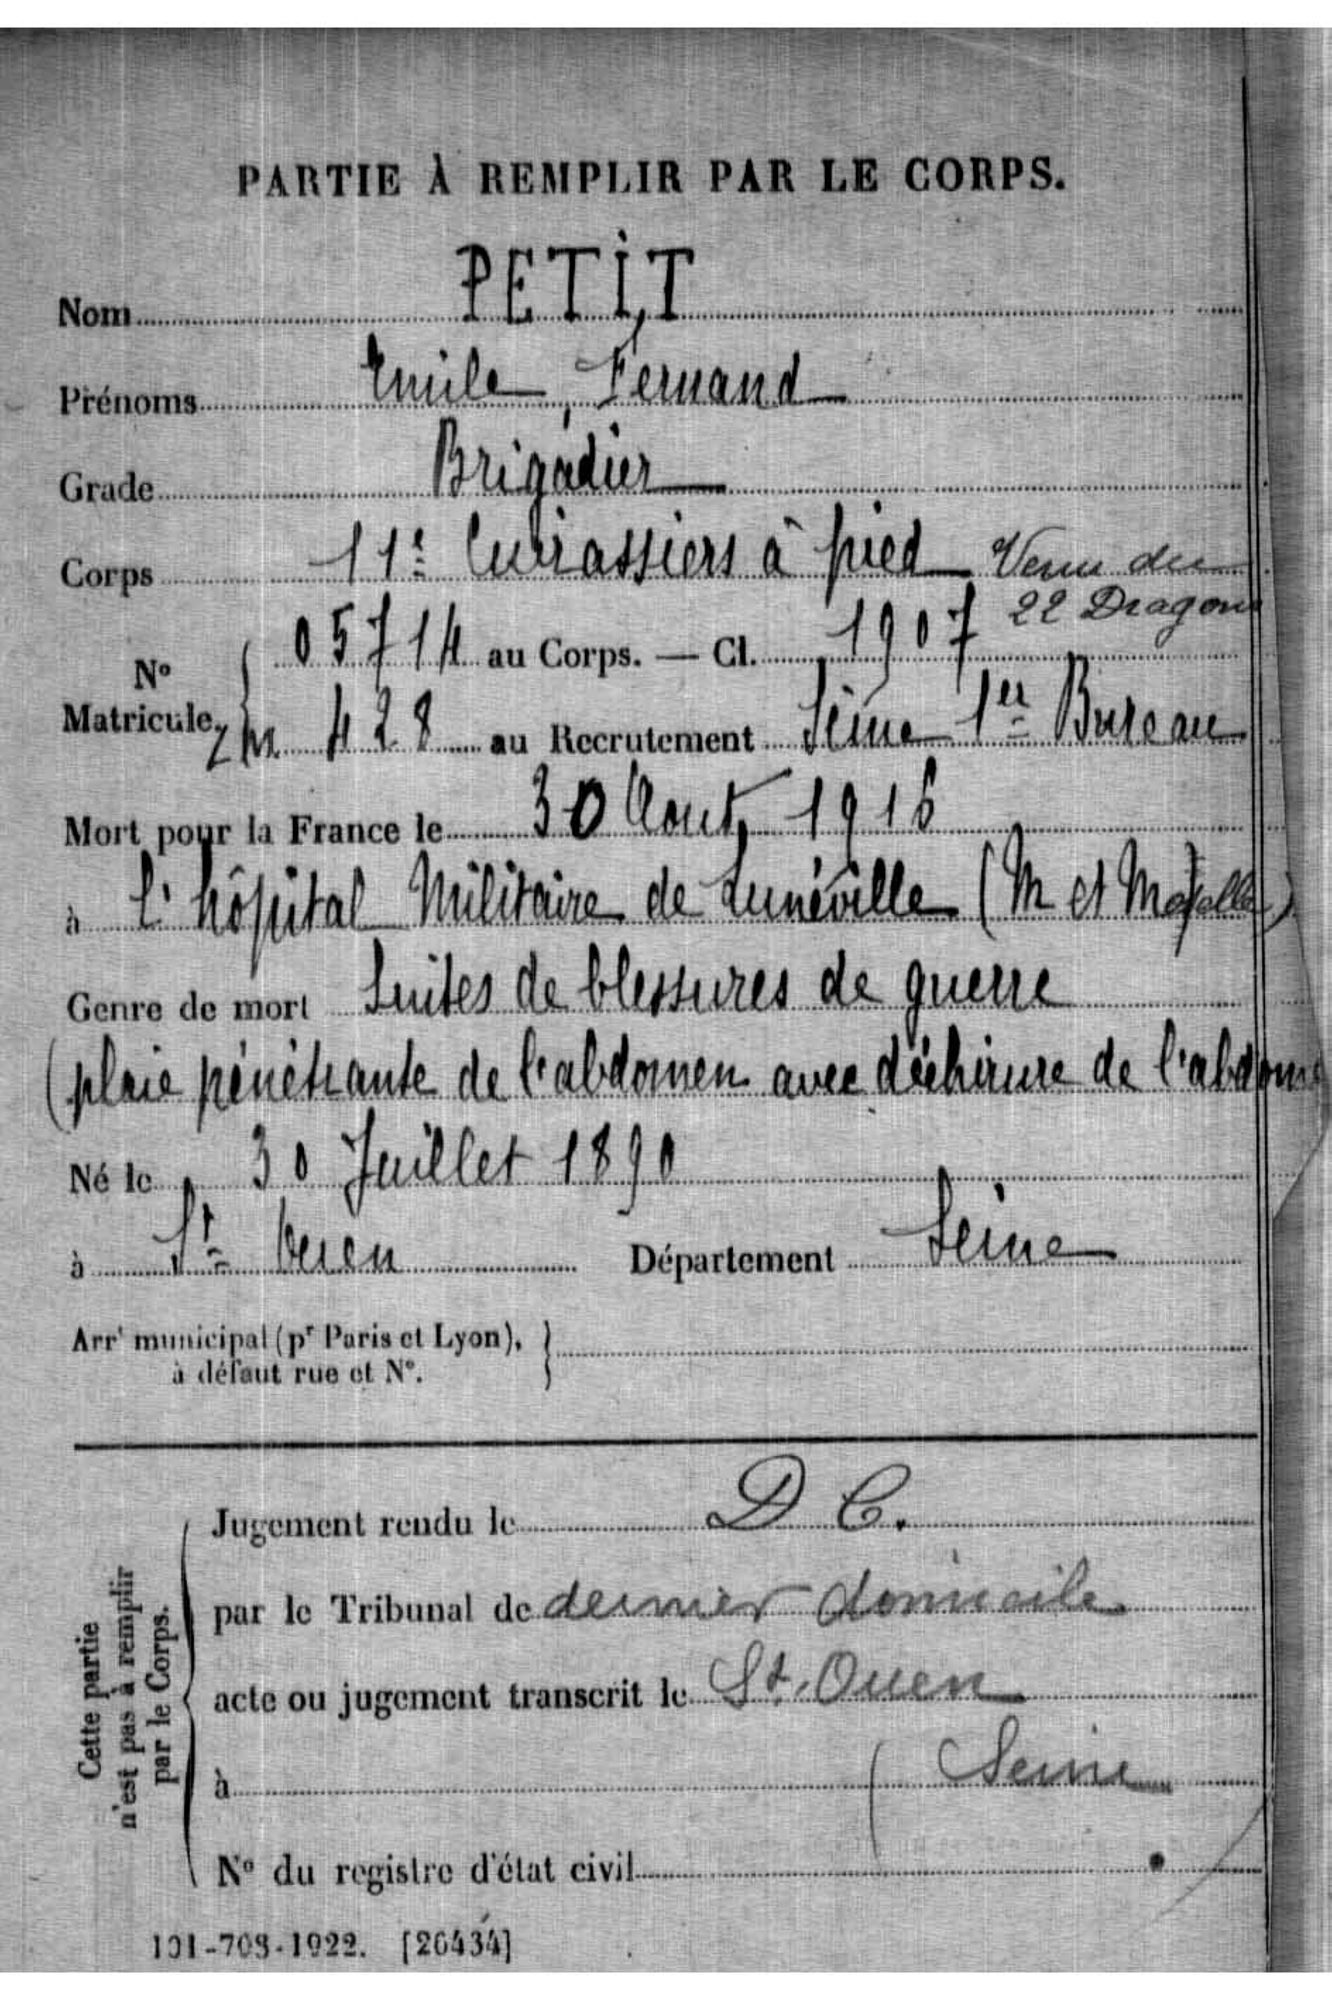 PARTIE À REMPLIR PAR LE CORPS.
Nom PETIT
Prénoms Emile, Fernand
Grade Brigadier
Corps 11e Cuirassiers à pied Venu du
22 Dragons
05714 au Corps. — Cl. 1907
No
Matricule 428 au Recrutement Seine 1er Bureau
Mort pour la France le 30 Aout 1916
à l'hôpital Militaire de Lunéville (M et Moselle)
Genre de mort Suites de blessures de guerre
(plaie pénétrante de l'abdomen avec déchirure de l'abdomen
Né le 30 Juillet 1890
à St Ouen Département Seine
Arrt municipal (pr Paris et Lyon),
à défaut rue et No.
Cette partie
n'est pas à remplir
par le Corps.
Jugement rendu le D C.
par le Tribunal de dernier domicile
acte ou jugement transcrit le St. Ouen
à (Seine
No du registre d'état civil
101-708-1922. [26434]